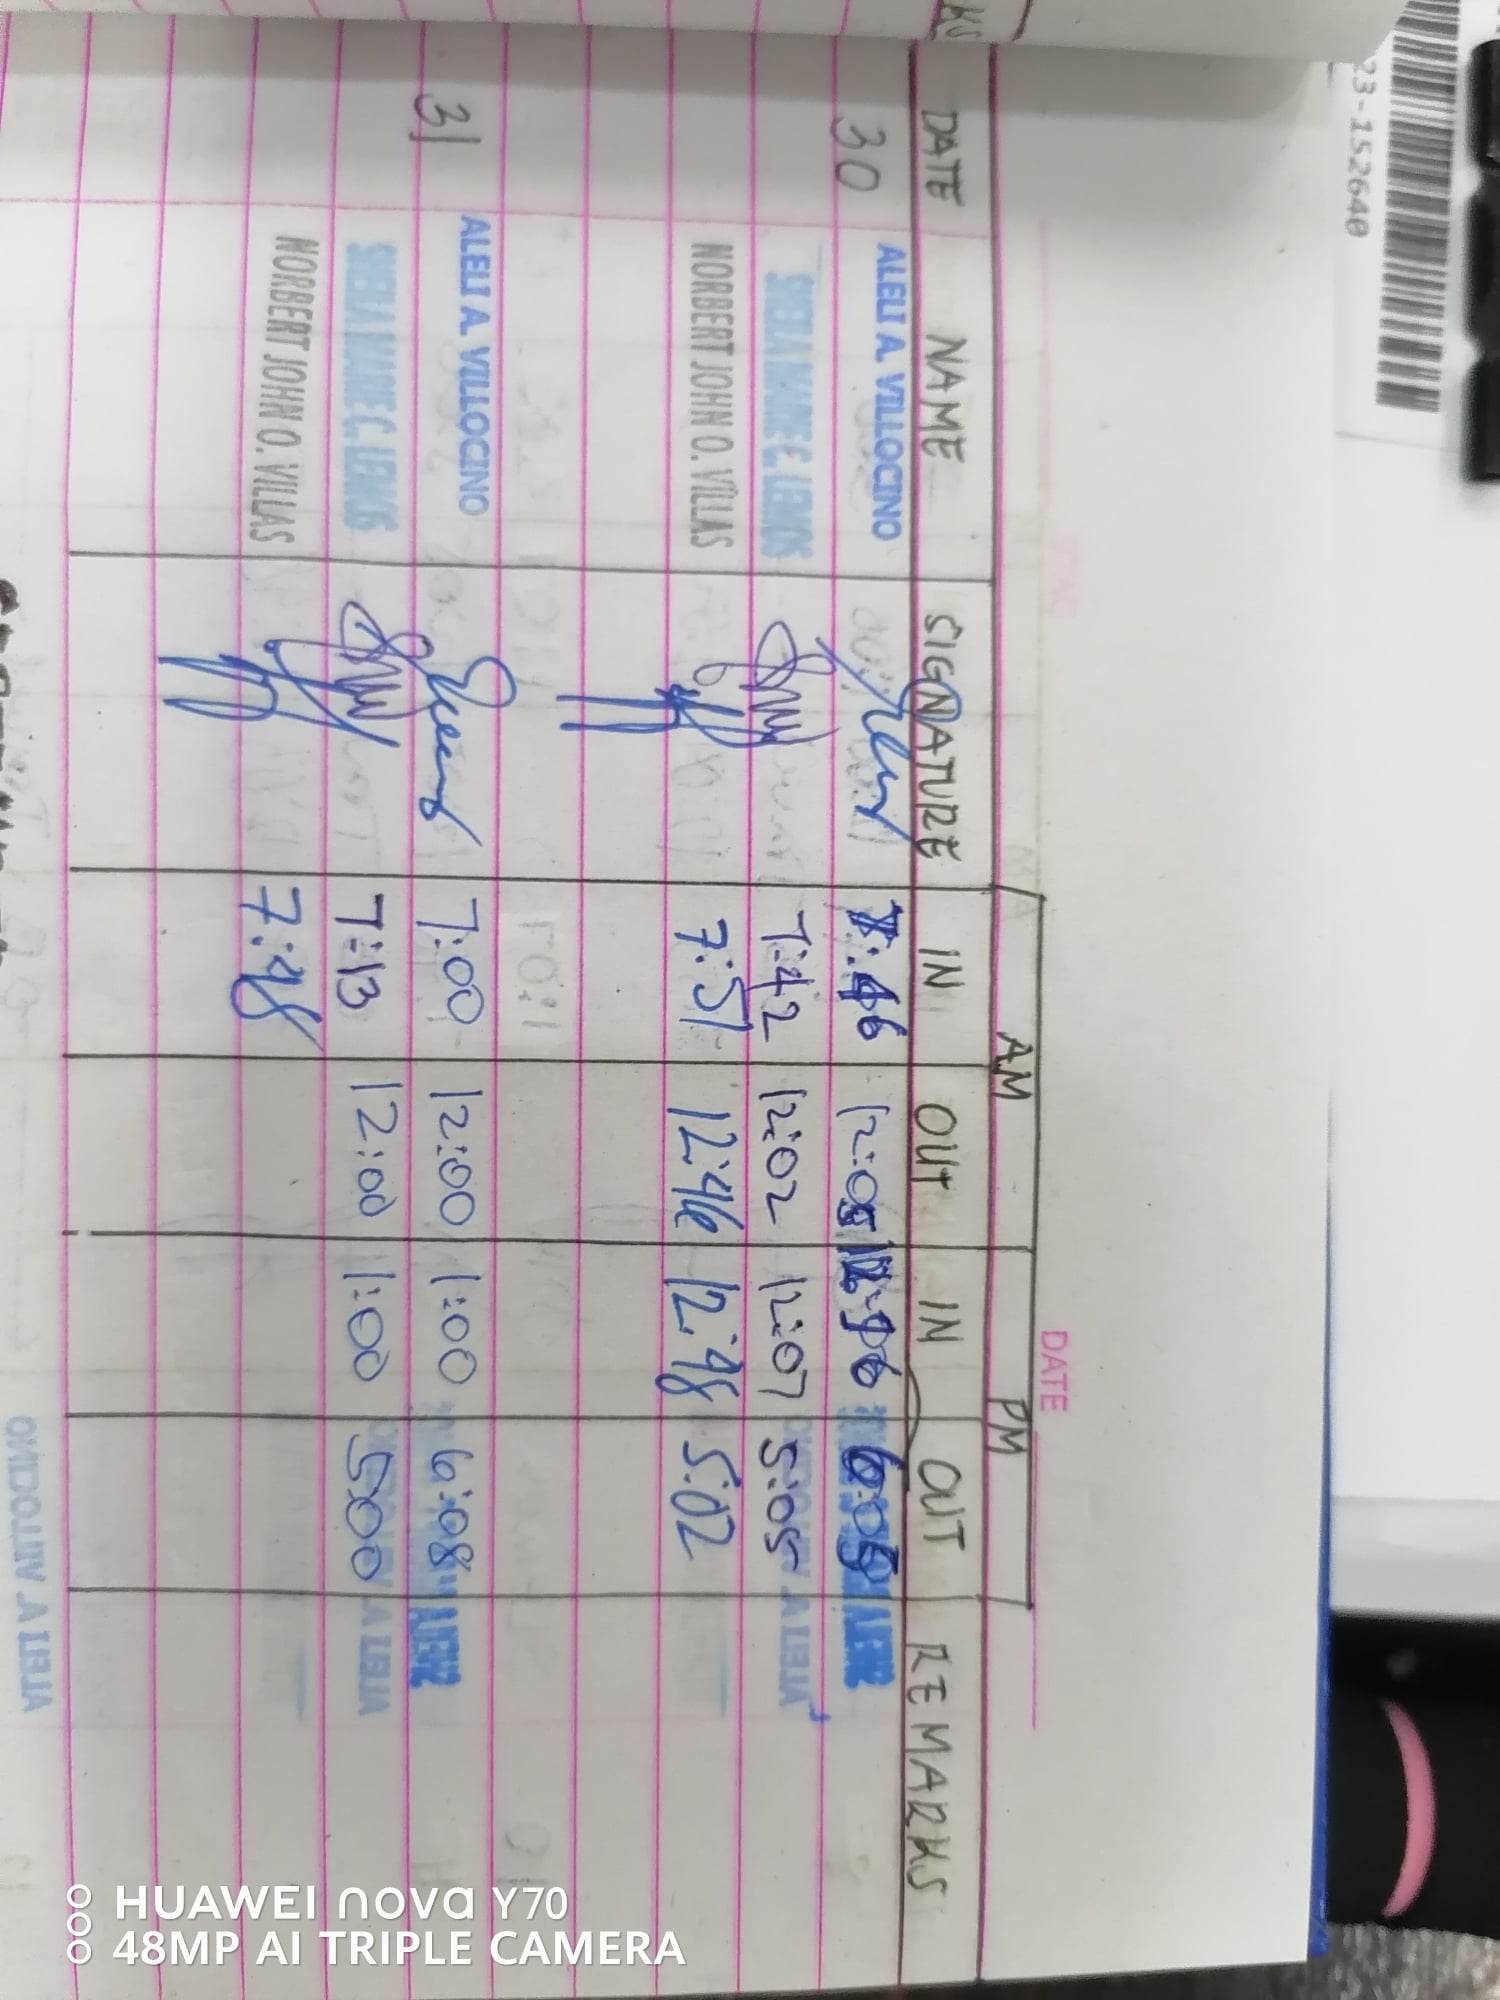 AM PM
DATE NAME SIGNATURE IN OUT IN OUT REMARKS
30 ALELI A. VILLOCINO 12:05 6:05
7:42 12:02 12:07 5:05
NORBERT JOHN O. VILLAS 7:51 12:46 12:48 5:02
31 ALELI A. VILLOCINO 7:00 12:00 1:00 6:08
7:13 12:00 1:00 5:00
NORBERT JOHN O. VILLAS 7:48
DATE
23-152640
HUAWEI nova Y70
48MP AI TRIPLE CAMERA